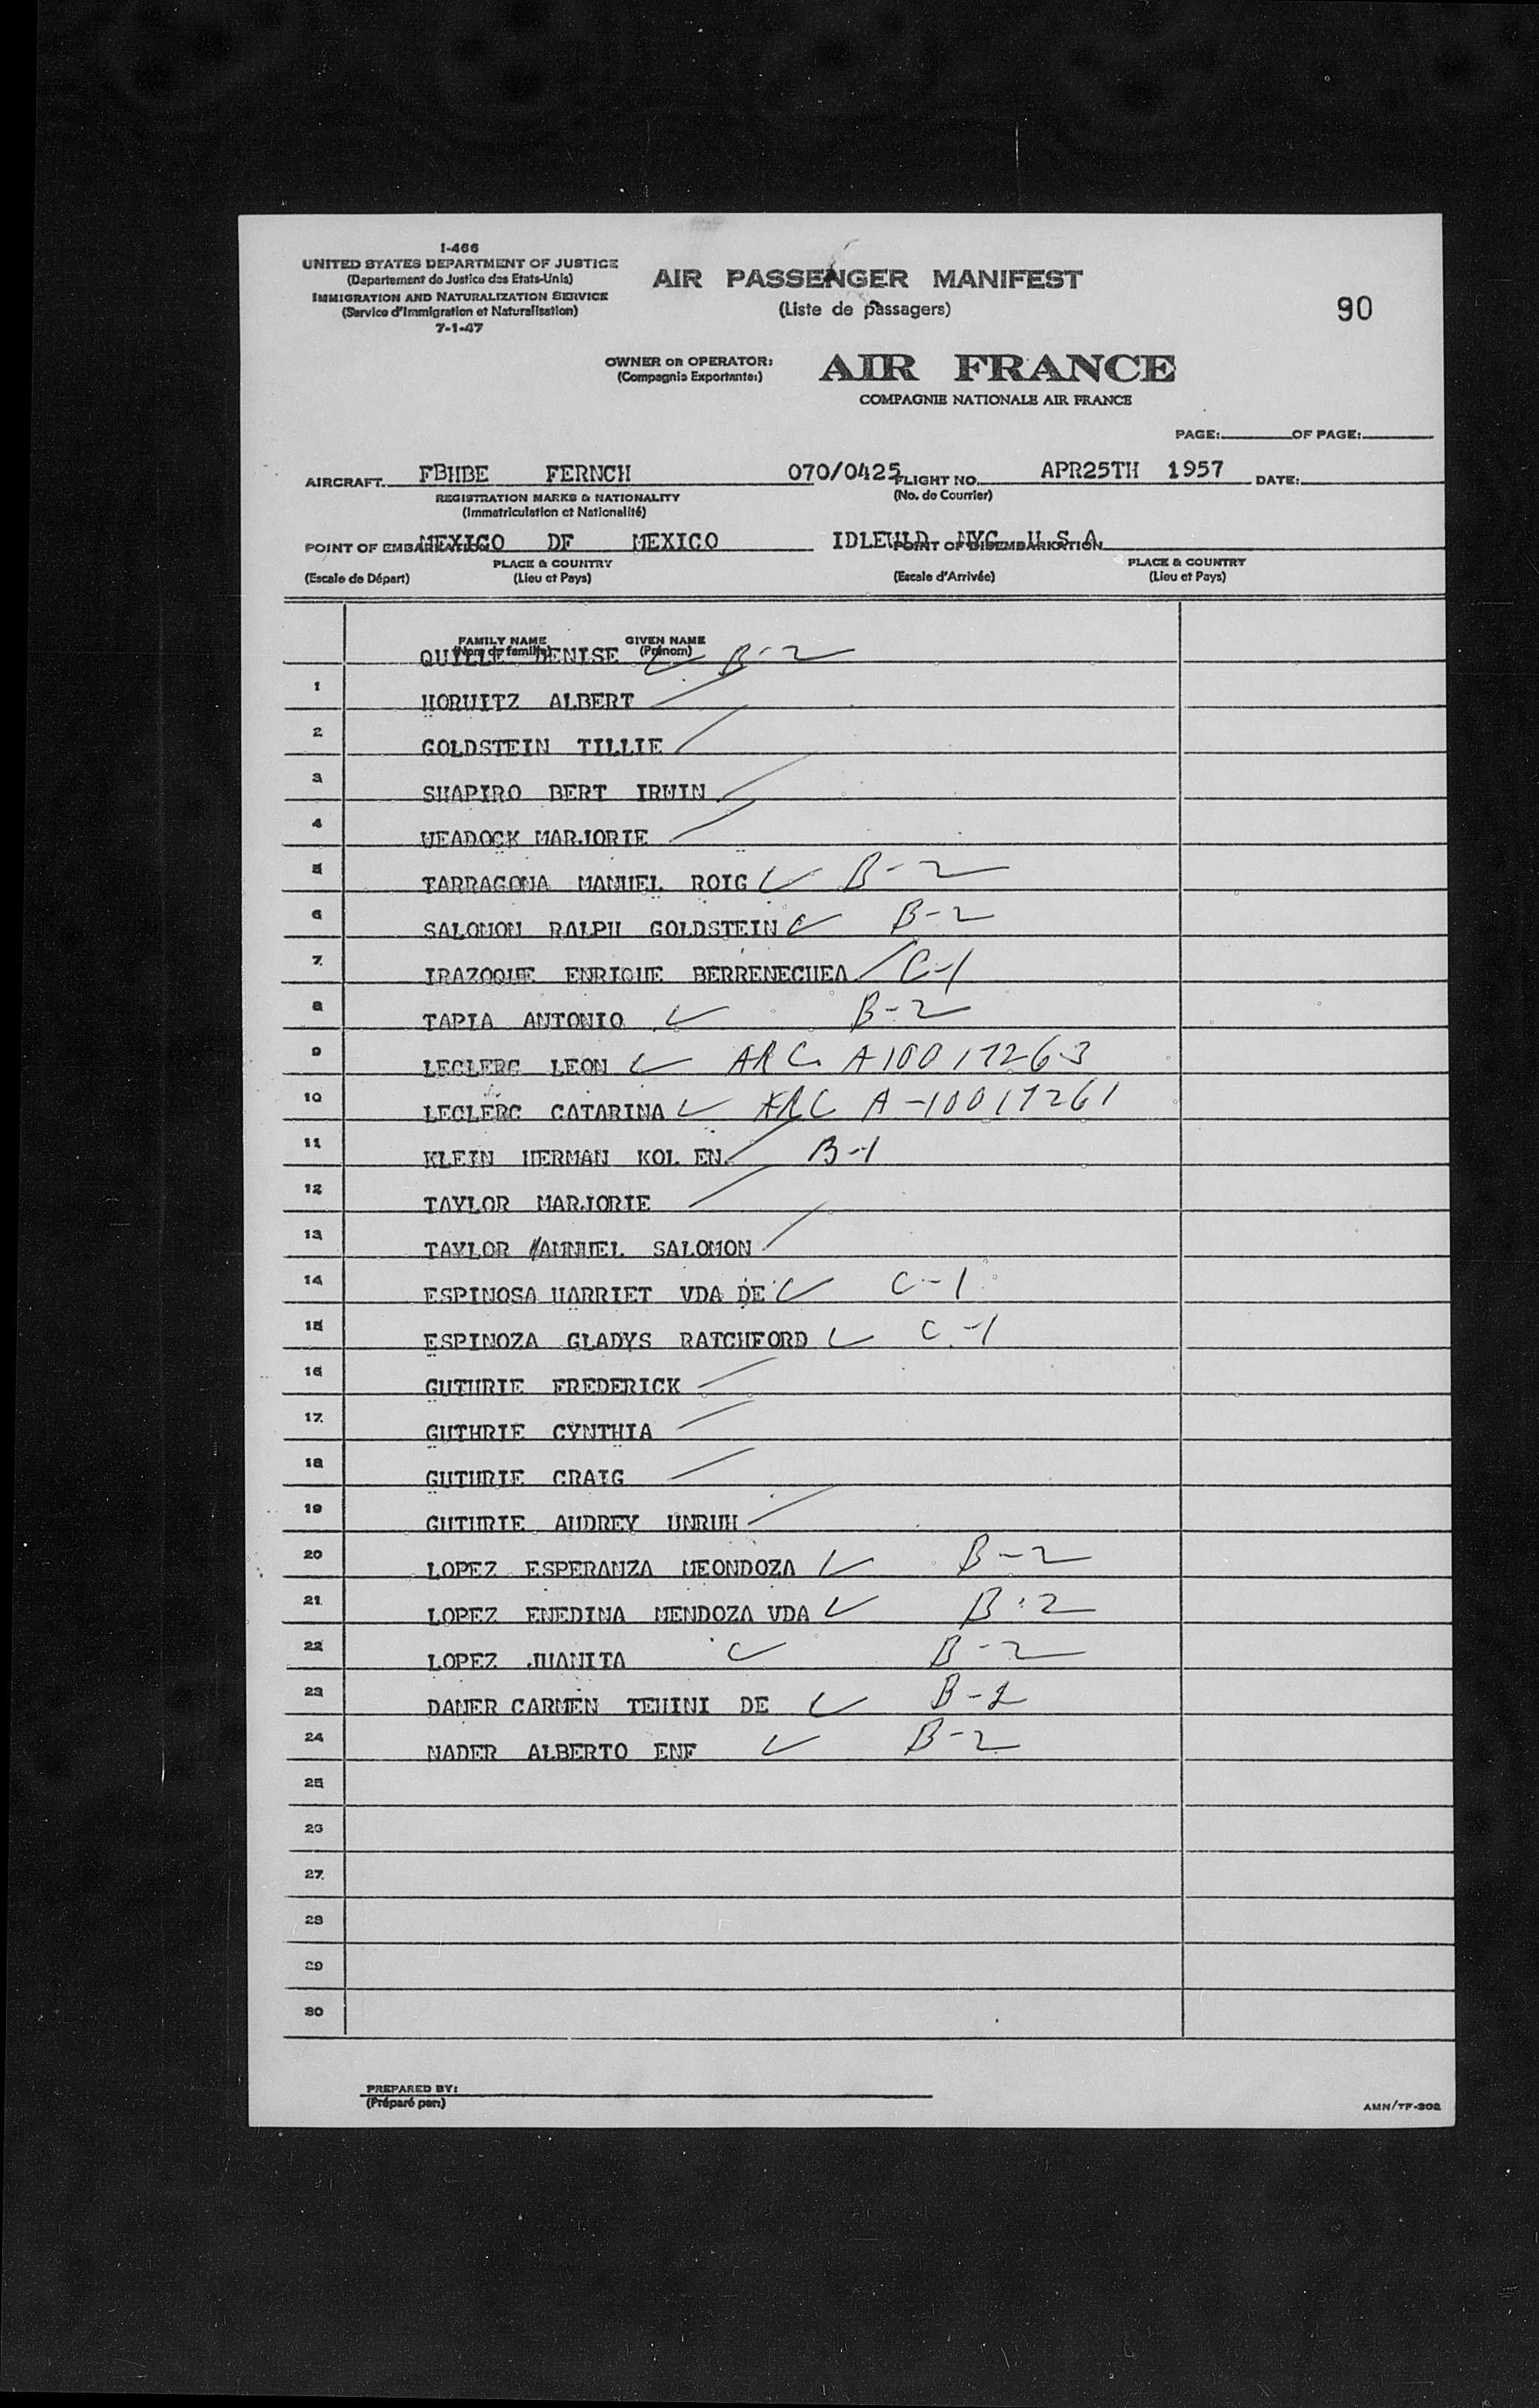 I-466
UNITED STATES DEPARTMENT OF JUSTICE
(Departement de Justice des Etats-Unis)
IMMIGRATION AND NATURALIZATION SERVICE
(Service d'Immigration et Naturalisation)
7-1-47
AIR PASSENGER MANIFEST
(Liste de passagers)
90
OWNER OR OPERATOR:
(Compagnie Exportante:)
AIR FRANCE
COMPAGNIE NATIONALE AIR FRANCE
PAGE: OF PAGE:
AIRCRAFT. FBHBE FERNCH 070/0425 FLIGHT NO. APR25TH 1957 DATE:
REGISTRATION MARKS & NATIONALITY
(Immatriculation et Nationalité)
(No. de Courrier)
POINT OF EMBARKATION MEXICO DF MEXICO IDLEWLD NYC U.S.A. POINT OF DISEMBARKATION
PLACE & COUNTRY PLACE & COUNTRY
(Escale de Départ) (Lieu et Pays) (Escale d'Arrivée) (Lieu et Pays)
FAMILY NAME GIVEN NAME
(Nom de famille) (Prénom)
QUILLE DENISE B-2
1 HORWITZ ALBERT
2 GOLDSTEIN TILLIE
3 SHAPIRO BERT IRWIN
4 WEADOCK MARJORIE
5 TARRAGONA MANUEL ROIG B-2
6 SALOMON RALPH GOLDSTEIN B-2
7 IRAZOQUE ENRIQUE BERRENECHEA C-1
8 TAPIA ANTONIO B-2
9 LECLERC LEON ARC A10017263
10 LECLERC CATARINA ARC A-10017261
11 KLEIN HERMAN KOL EN. B-1
12 TAYLOR MARJORIE
13 TAYLOR AMNUEL SALOMON
14 ESPINOSA HARRIET VDA DE C-1
15 ESPINOZA GLADYS RATCHFORD C-1
16 GUTHRIE FREDERICK
17 GUTHRIE CYNTHIA
18 GUTHRIE CRAIG
19 GUTHRIE AUDREY UNRUH
20 LOPEZ ESPERANZA MEONDOZA B-2
21 LOPEZ ENEDINA MENDOZA VDA B-2
22 LOPEZ JUANITA B-2
23 DANER CARMEN TEHINI DE B-2
24 NADER ALBERTO ENF B-2
25
26
27
28
29
30
PREPARED BY:
(Préparé par:)
AMN/TF-302